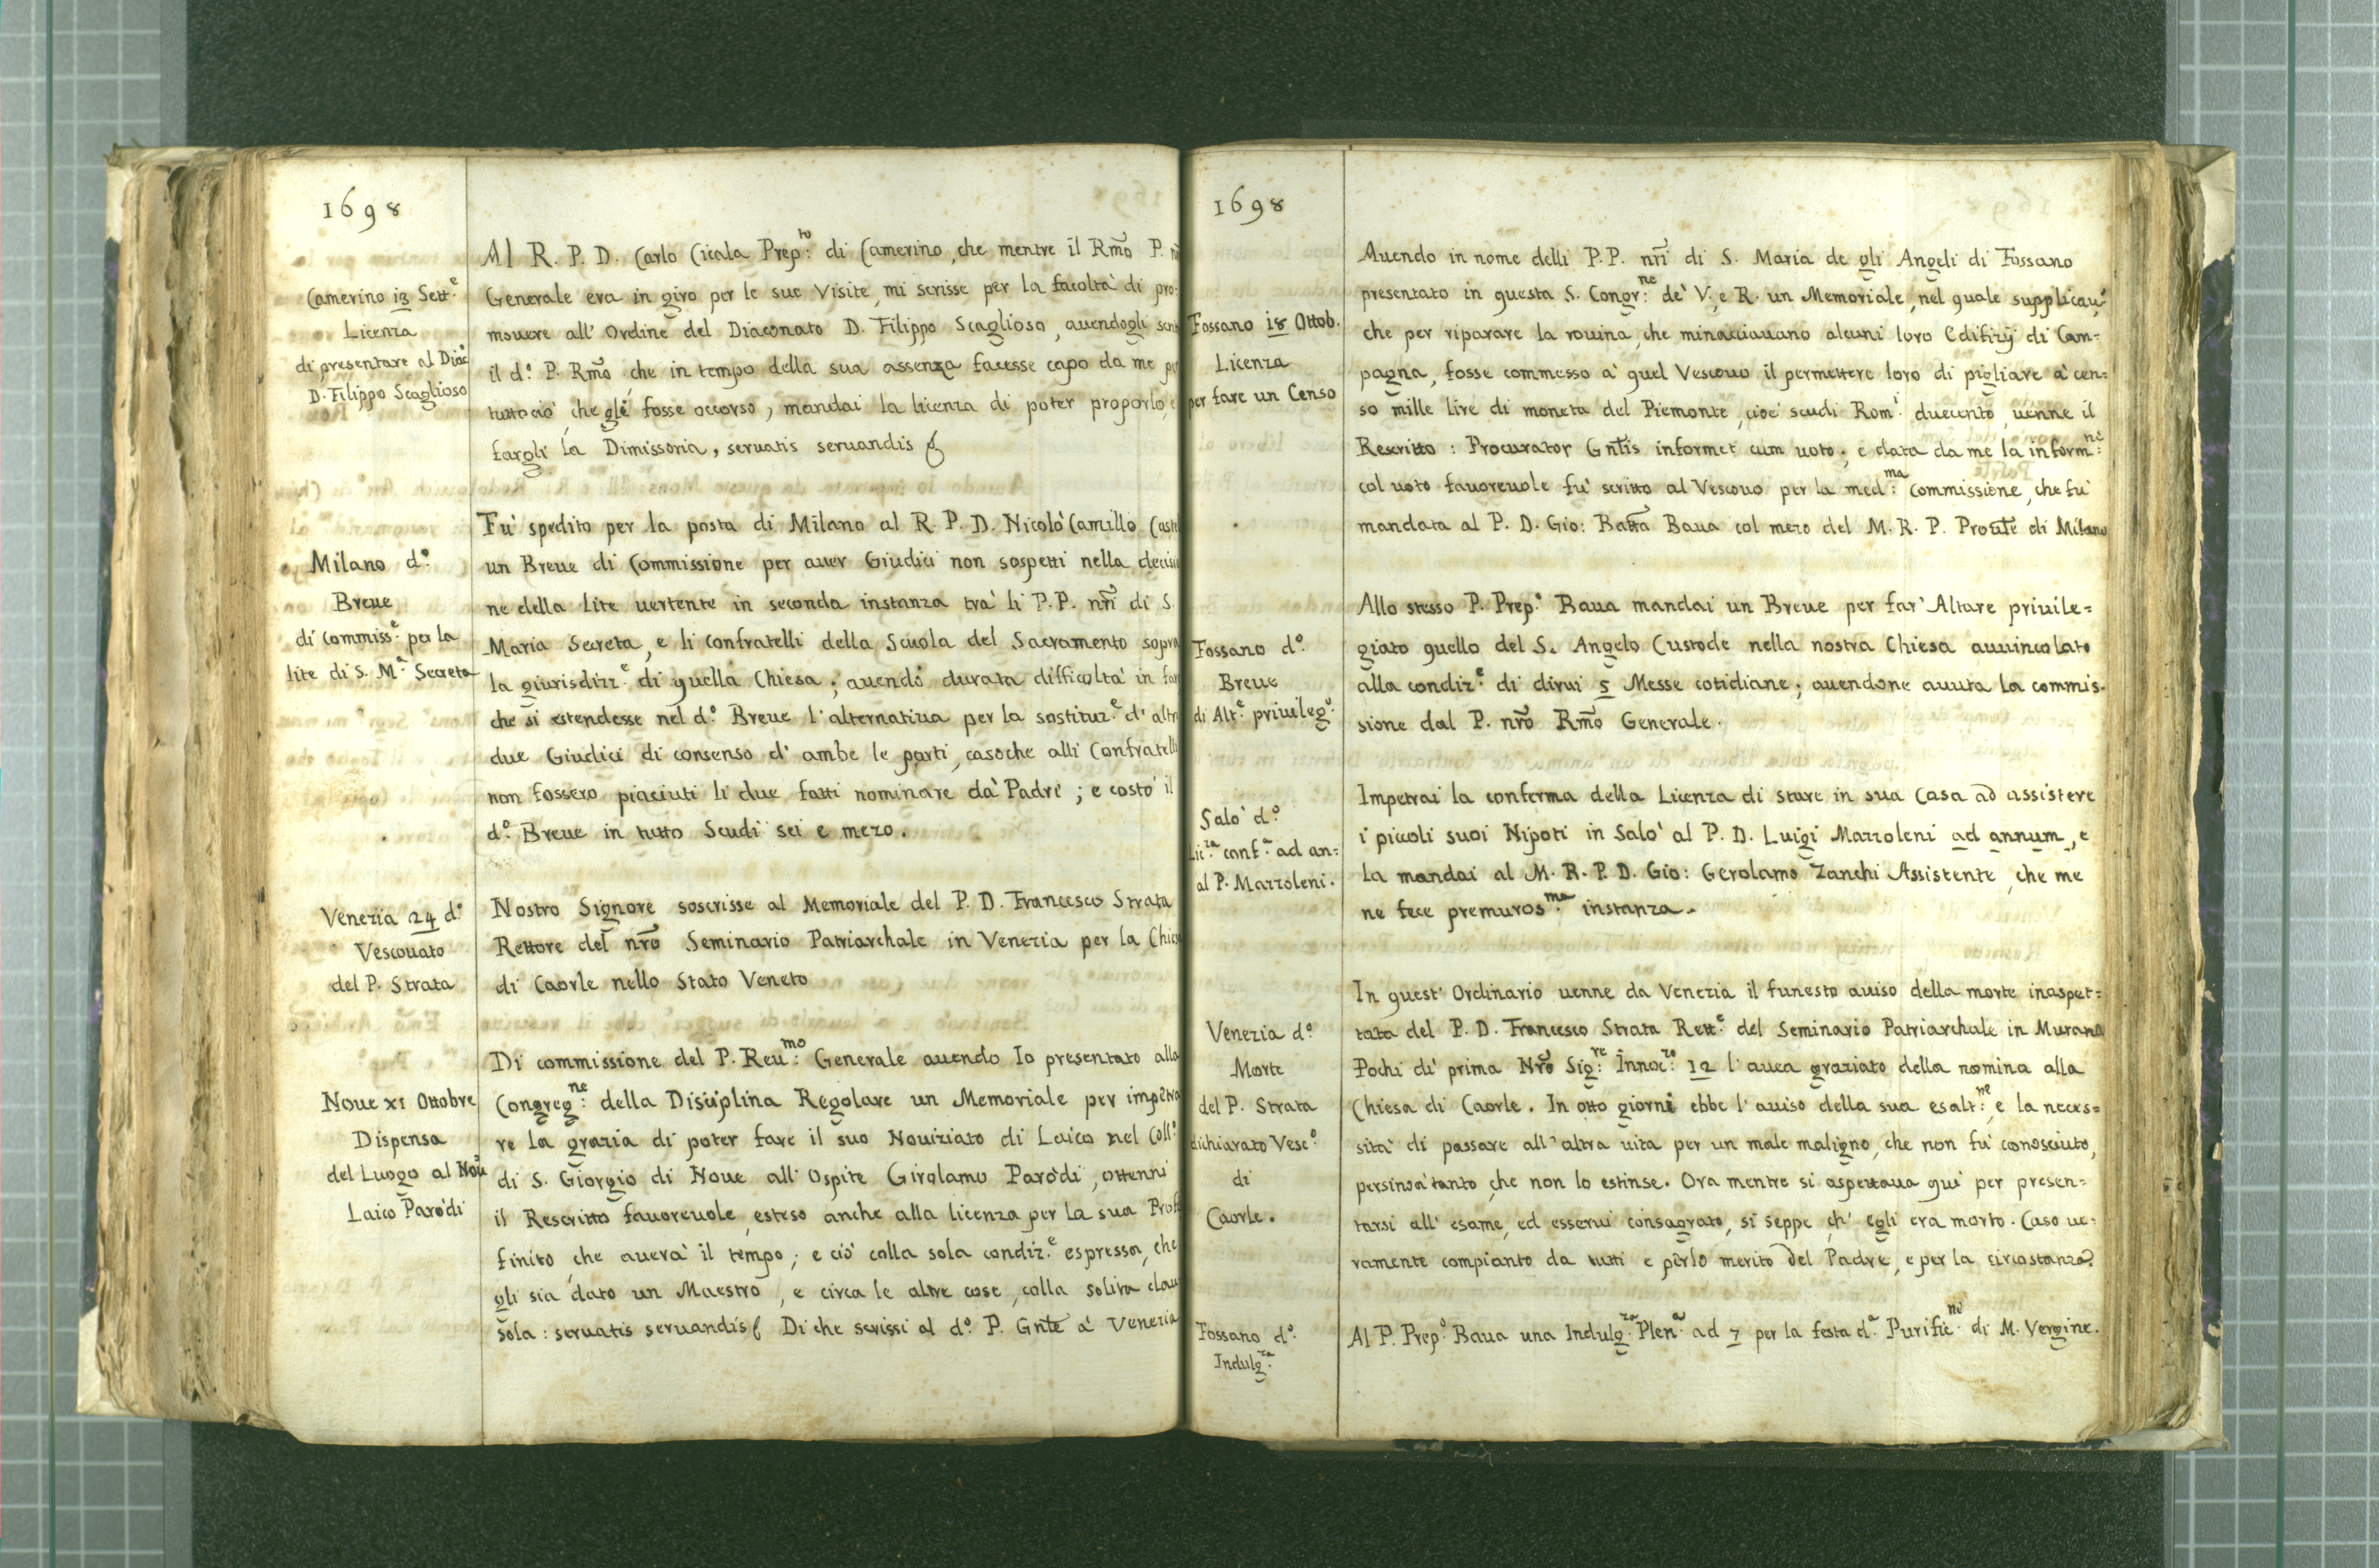 1698
Camerino 13 Sett.e
Licenza
di presentare al Diac.o
D. Filippo Scaglioso
Al R. P. D. Carlo Cicala Prep.to di Camerino, che mentre il Rm̃o P.
Generale era in giro per le sue Visite, mi scrisse per la facoltà di pro-
mouere all' Ordine del Diaconato D. Filippo Scaglioso, auendogli
il d.o P. Rm̃o che in tempo della sua assenza facesse capo da me
tutto ciò, che gli fosse occorso, mandai la licenza di poter proporlo,
fargli la Dimissoria, seruatis seruandis
Milano d.o
Breue
di Commiss.e per la
lite di S. M.a Secreta
Fù spedito per la posta di Milano al R. P. D. Nicolò Camillo
un Breue di Commissione per auer Giudici non sospetti nella decisio
ne della Lite uertente in seconda instanza trà li P.P. nr̃i di S.
Maria Secreta, e li confratelli della Scuola del Sacramento sopra
la giurisdiz.e di quella Chiesa; auendo durata difficoltà in far
che si estendesse nel d.o Breue l'alternatiua per la sostituz.e d' altri
due Giudici di consenso d' ambe le parti, casoche alli Confratelli
non fossero piaciuti li due fatti nominare dà Padri; e costò il
d.o Breue in tutto Scudi sei e mezo.
Venezia 24 d.o
Vescouato
del P. Strata
Nostro Signore soscrisse al Memoriale del P. D. Francesco Strata
Rettore del nr̃o Seminario Patriarchale in Venezia per la Chiesa
di Caorle nello Stato Veneto
Noue XI Ottobre
Dispensa
del Luogo al Nou.o
Laico Parodi
Di commissione del P. Reu.mo Generale auendo Io presentato alla
Congreg.ne della Disciplina Regolare un Memoriale per impetra
re la grazia di poter fare il suo Nouiziato di Laico nel Coll.o
di S. Giorgio di Noue all' Ospite Girolamo Parodi, ottenni
il Rescritto fauoreuole esteso anche alla licenza per la sua Prof
finito che auerà il tempo; e ciò colla sola condiz.e espressa, che
gli sia dato un Maestro, e circa le altre cose, colla solita clau
sola: seruatis seruandis Di che scrissi al d.o P. Gnl̃e à Venezia
1698
Fossano 18 Ottob.
Licenza
per fare un Censo
Auendo in nome delli P.P. nr̃i di S. Maria de gli Angeli di Fossano
presentato in questa S. Congr.ne de' V. e R. un Memoriale, nel quale supplicau.o
che per riparare la rouina, che minacciauano alcuni loro Edifizÿ di Cam=
pagna, fosse commesso à quel Vescouo il permettere loro di pigliare à cen=
so mille lire di moneta del Piemonte, cioè scudi Rom.i duecento, uenne il
Rescritto: Procurator Gnl̃is informet cum uoto; e data da me la inform.ne
col uoto fauoreuole fù scritto al Vescouo per la med.ma commissione, che fù
mandata al P. D. Gio: Batt̃a Baua col mezo del M. R. P. Prou̅le di Milano
Fossano d.o
Breue
di Alt.e priuileg.o
Allo stesso P. Prep.o Baua mandai un Breue per far' Altare priuile=
giato quello del S. Angelo Custode nella nostra Chiesa auuincolato
alla condiz.e di dirui 5 Messe cotidiane; auendone auuta la commis-
sione dal P. nr̃o Rm̃o Generale.
Salò d.o
Lic.za conf.a ad an=
al P. Mazzoleni.
Impetrai la conferma della Licenza di stare in sua Casa ad assistere
i piccoli suoi Nipoti in Salò al P. D. Luigi Mazzoleni ad annum, e
la mandai al M. R. P. D. Gio: Gerolamo Zanchi Assistente, che me
ne fece premuros.ma instanza.
Venezia d.o
Morte
del P. Strata
dichiarato Vesc.o
di
Caorle.
In quest' Ordinario uenne da Venezia il funesto auiso della morte inaspet=
tata del P. D. Francesco Strata Rett.e del Seminario Patriarchale in Murano
Pochi dì prima Nr̃o Sig.re Innoc.zo 12 l'auea graziato della nomina alla
Chiesa di Caorle. In otto giorni ebbe l'auiso della sua esalt.ne e la neces=
sità di passare all' altra uita per un male maligno, che non fù conosciuto,
persinoà tanto che non lo estinse. Ora mentre si aspettaua quì per presen=
tarsi all' esame, ed esserui consagrato, si seppe ch' egli era morto. Caso ue=
ramente compianto da tutti e perlo merito del Padre, e per la circostanza.
Fossano d.o
Indulg.za
Al P. Prep.o Baua una Indulg.za Plen.a ad 7 per la festa d.a Purific.ne di M. Vergine.